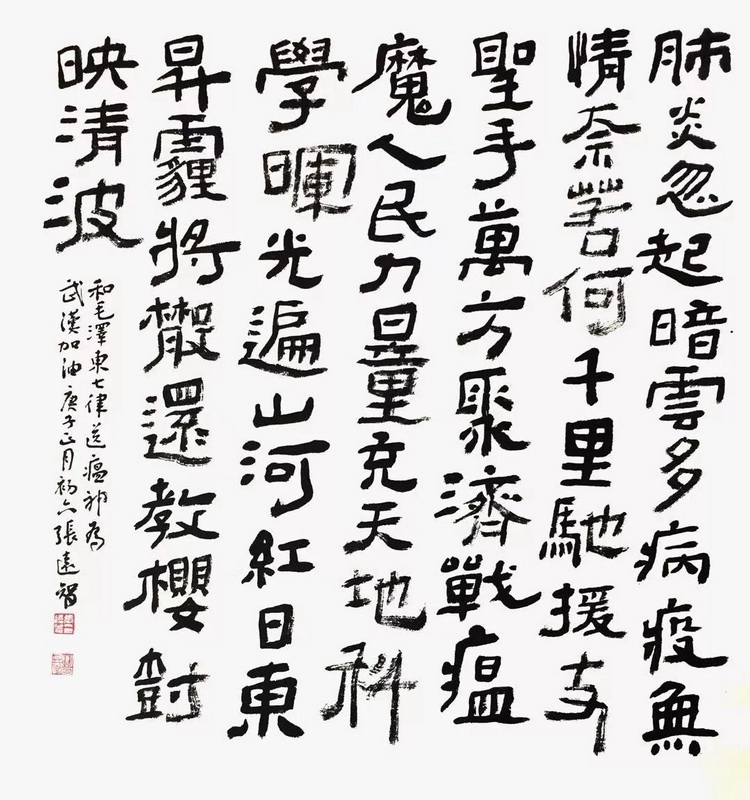 肺炎忽起暗雲多病疫無
情奈若何千里馳援
聖手萬方聚濟戰瘟
魔人民力量充天地科
學暉光遍山河紅日東
昇霾將散還教櫻樹
映清波
和毛澤東七律送瘟神為
武漢加油庚子正月初六張遠智